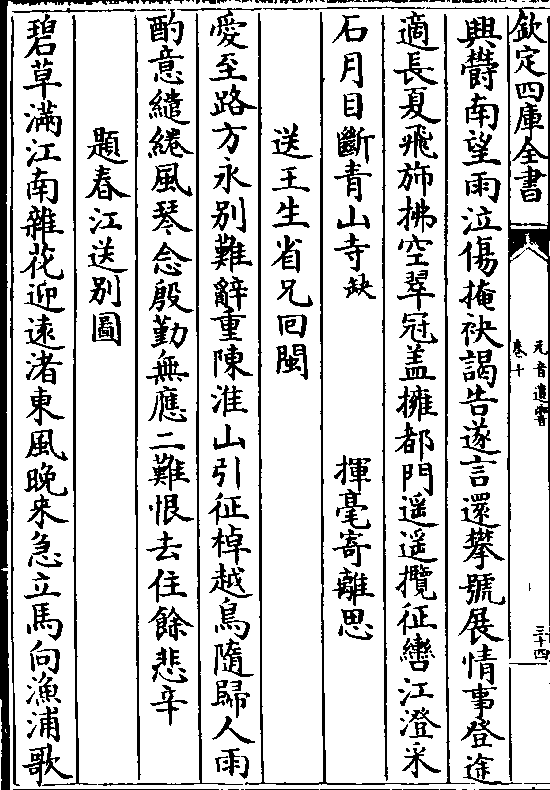 欽定四庫全書
元音遺響
卷十
三十四
興欝南望雨泣傷掩袂謁告遂言還攀號展情事登途
適長夏飛斾拂空翠冠盖擁都門遥遥攬征轡江澄采
石月目斷青山寺缺 揮毫寄離思
送王生省兄回閩
愛至路方永别難辭重陳淮山引征棹越鳥隨歸人雨
酌意繾綣風琴念殷勤無應二難恨去住餘悲辛
題春江送别圖
碧草滿江南雜花迎逺渚東風晚來急立馬向漁浦歌